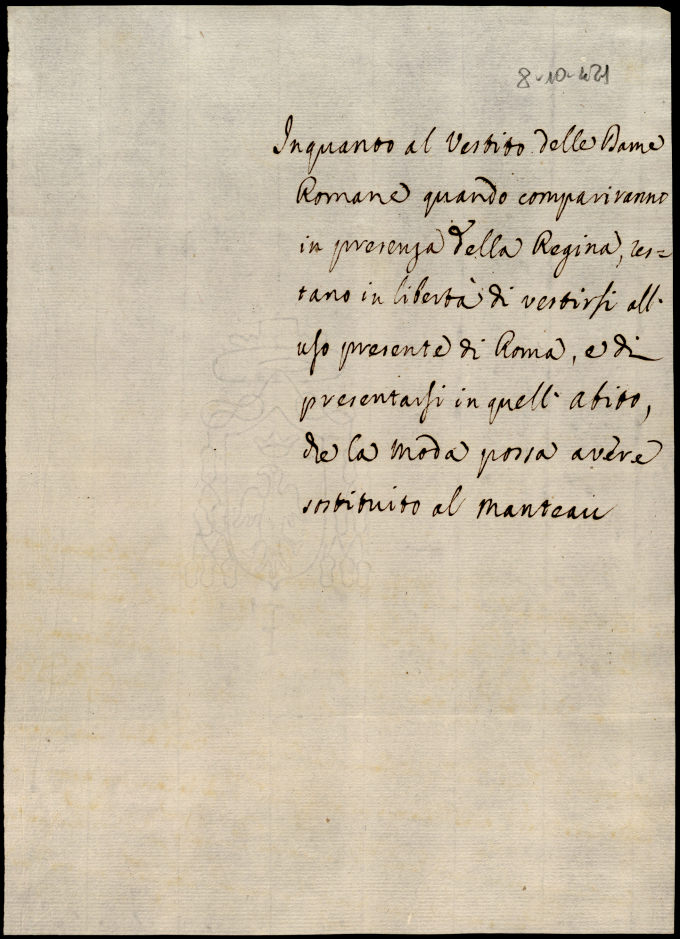 8-10-421
Inquanto al Vestito delle Dame
Romane quando compariranno
in presenza della Regina, res=
tano in libertà di vestirsi all'
uso presente di Roma, e di
presentarsi in quell' abito,
che la Moda possa avere
sostituito al Manteau